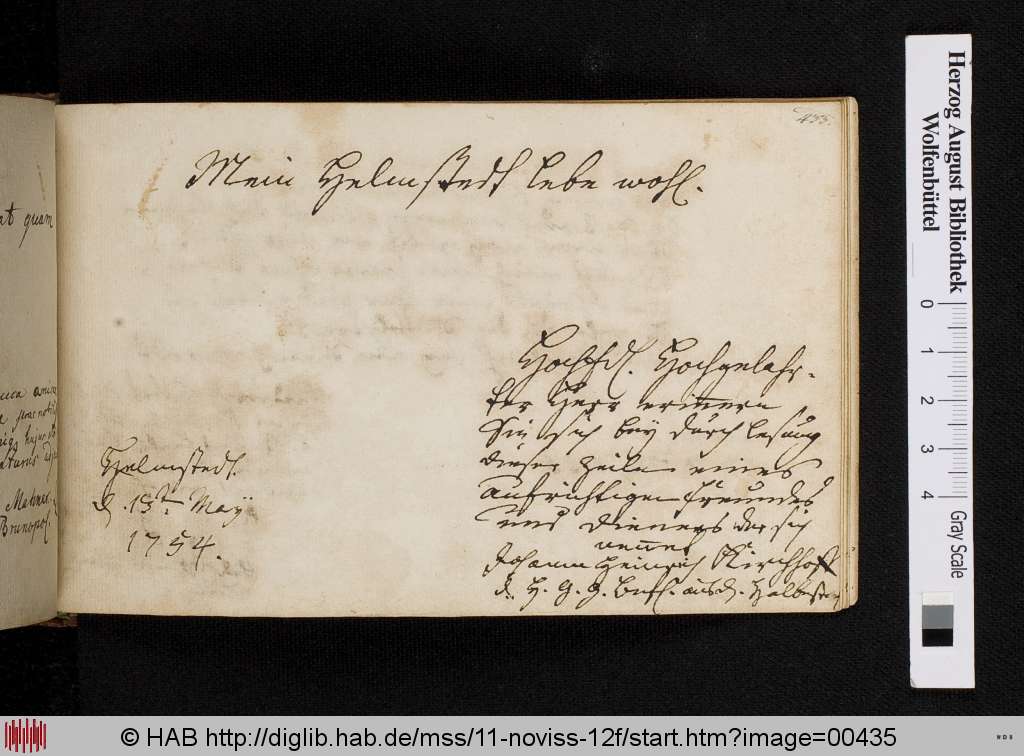 433.
Mein Helmstedt lebe wohl.
at quam
Hochfd. Hochgelahr-
ter Herr erinnern
Sie sich bey durch lesung
dieser Zeilen eines
aufrichtigen Freundes
und Dieners der sich
nennet
Johann Heinrich Kirchhoff
d. H. G. G. aus d. Halberst
Helmstedt.
d. 13ten May
1754.
Herzog August Bibliothek
Wolfenbüttel
0 1 2 3 4
Gray Scale
© HAB http://diglib.hab.de/mss/11-noviss-12f/start.htm?image=00435